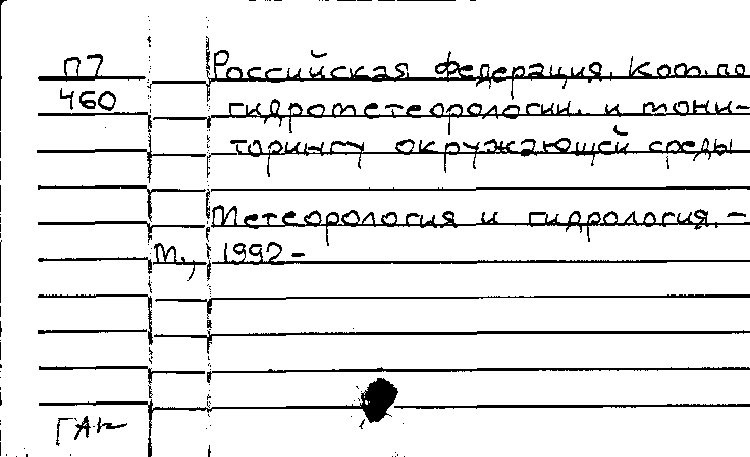 П7 Российская Федерация. Ком. по
460 гидрометеорологии. и мони-
торингу окружающей среды
Метеорология и гидрология. –
М., 1992 –
ГАК